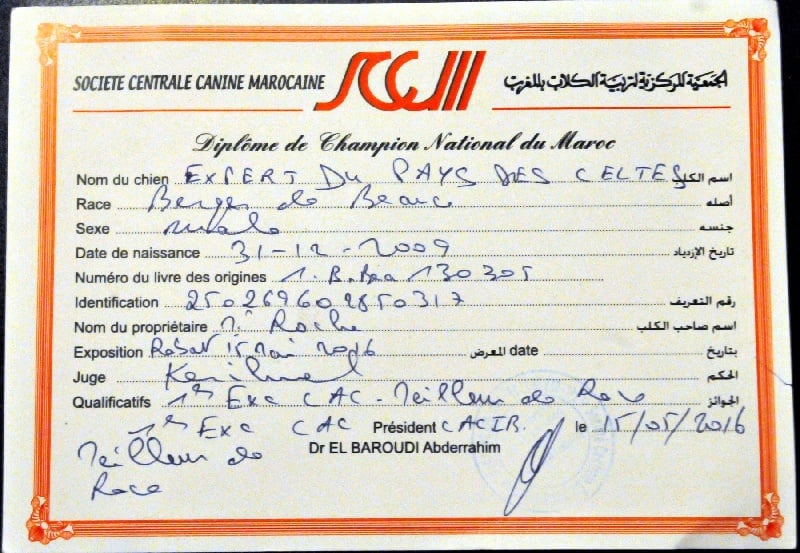 SOCIETE CENTRALE CANINE MAROCAINE الجمعية المركزية لتربية الكلاب بالمغرب
Diplôme de Champion National du Maroc
Nom du chien EXPERT DU PAYS DES CELTES اسم الكلب
Race Berger de Beauce أصله
Sexe male جنسه
Date de naissance 31-12-2009 تاريخ الإزدياد
Numéro du livre des origines 1. B. Bea 130305
Identification 250269602850317 رقم التعريف
Nom du propriétaire Roche اسم صاحب الكلب
Exposition Rabat 15 Mai 2016 المعرض date بتاريخ
Juge الحكم
Qualificatifs 1er Exc CAC - Meilleur de Race الجوائز
1er Exc CAC Président CACIB. le 15/05/2016
Meilleur de Dr EL BAROUDI Abderrahim
Race